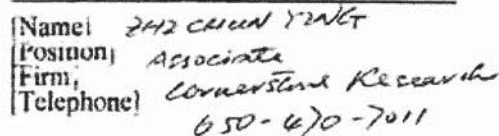 [Name] ZHI CHUN YING
[Position] Associate
[Firm, Cornerstone Research
[Telephone] 650-470-7011